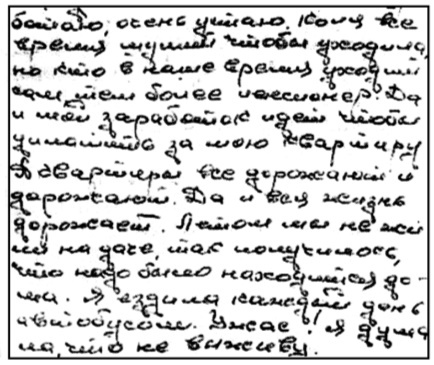 ботаю, очень устаю. Коля все
время шумит чтобы уходила,
но кто в наше время уходит
сам, тем более пенсионер. Да
и мой заработок идет чтобы
уплатить за мою квартиру
А квартиры все дорожают и
дорожают. Да и вся жизнь
дорожает. Летом мы не жи
ли на даче, так получилось,
что надо было находится до-
ма. Я ездила каждый день
автобусом. Ужас! Я дума
ла, что не выживу.